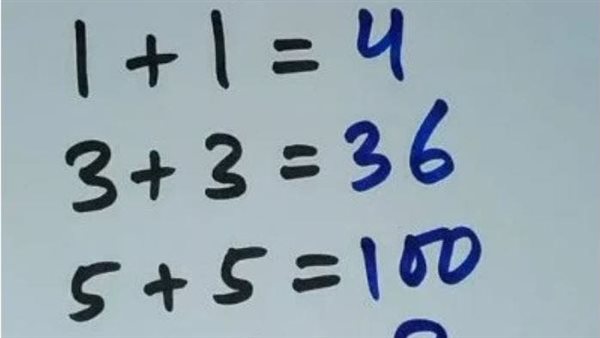 1 + 1 = 4
3 + 3 = 36
5 + 5 = 100